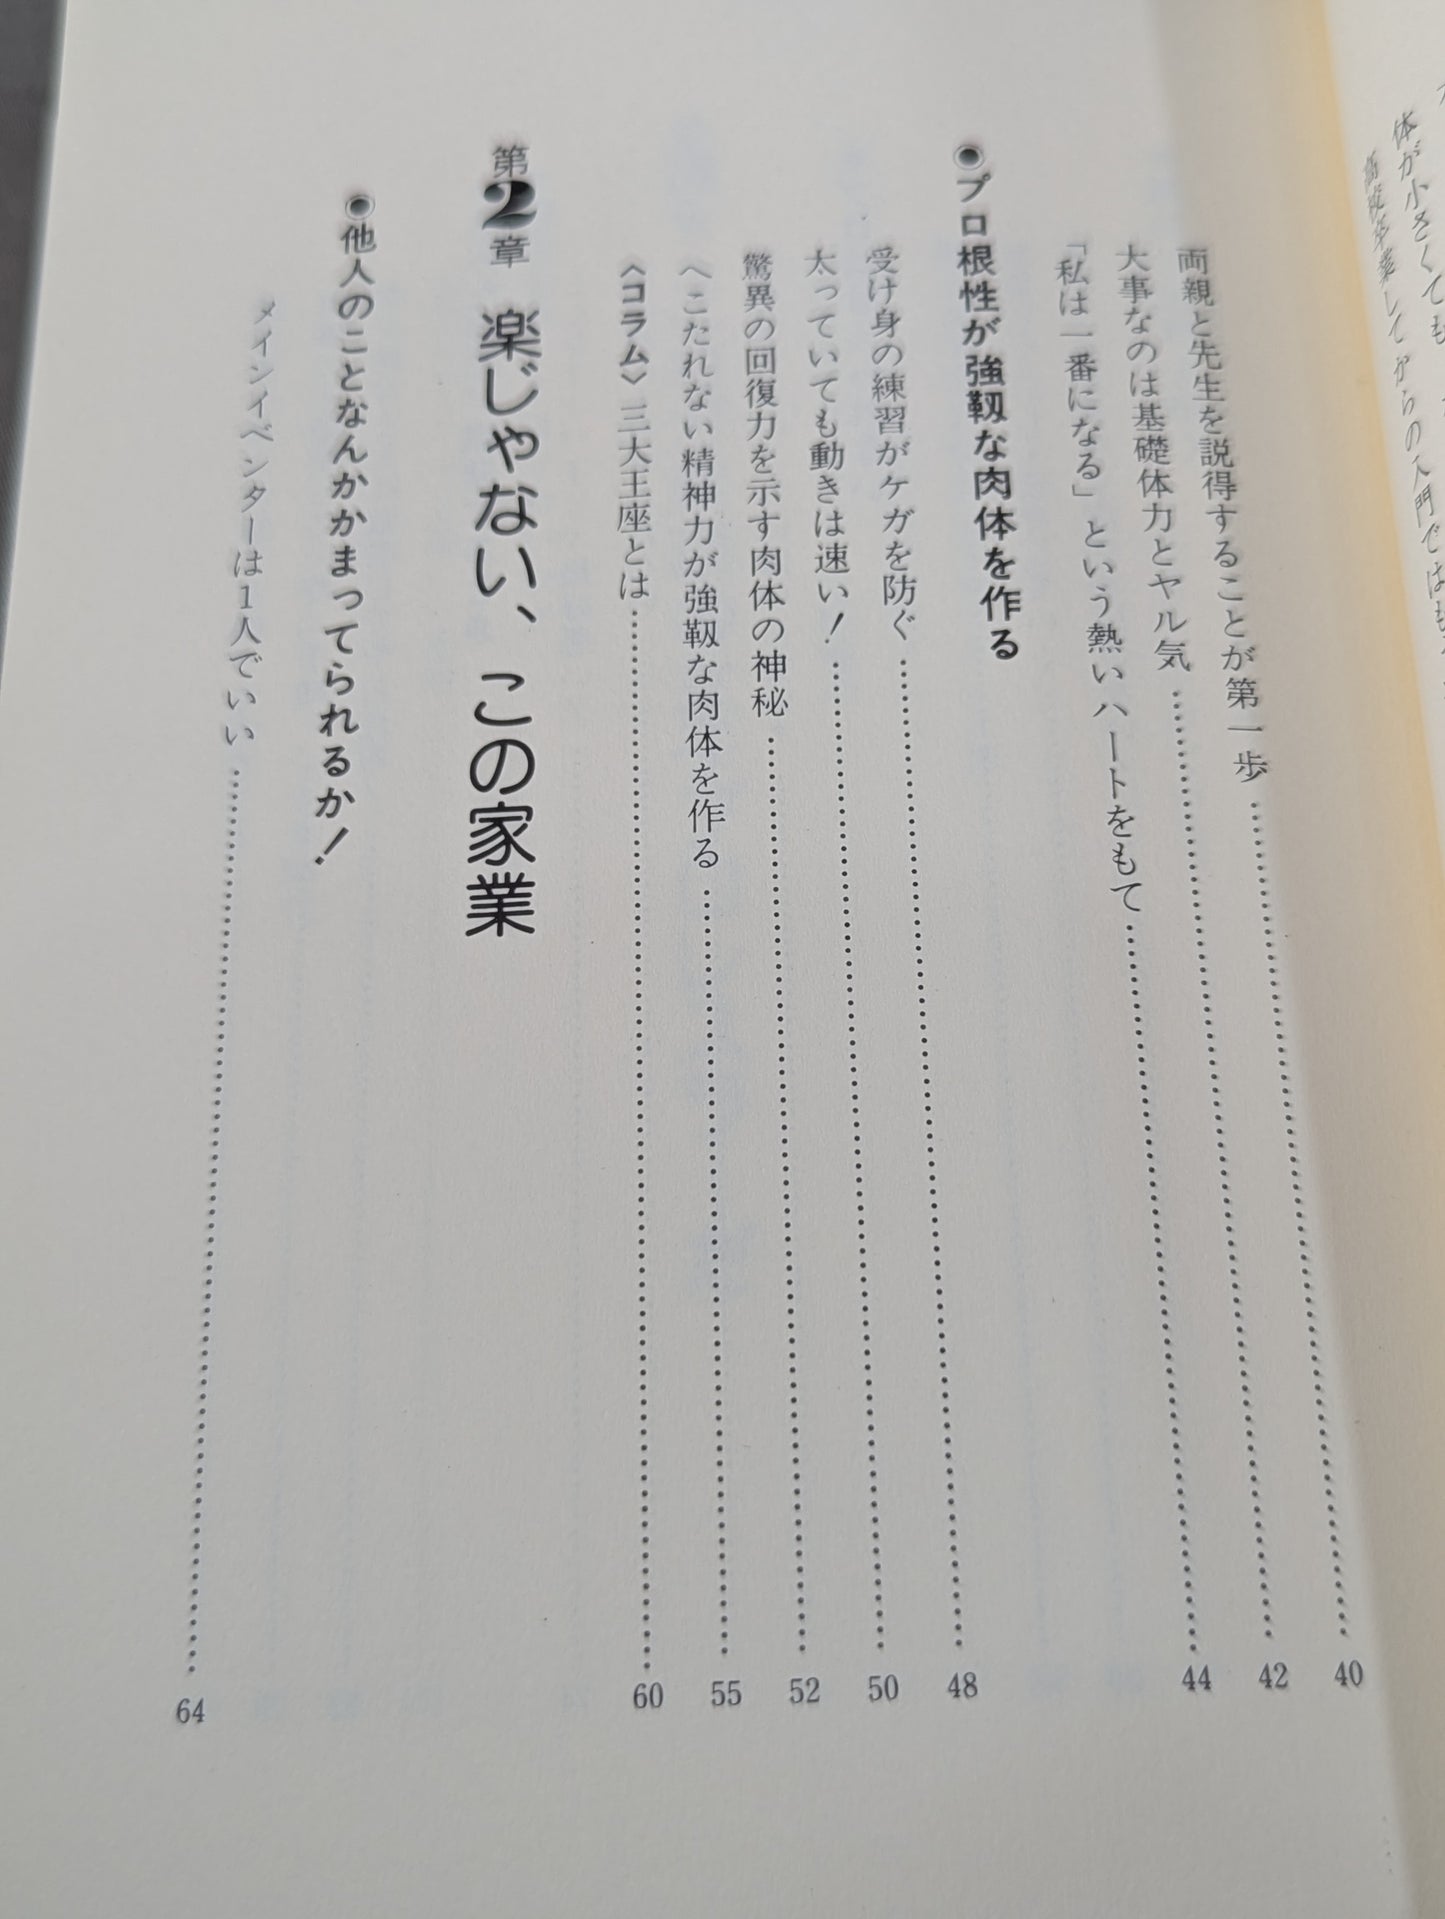 体が小さくても
高校卒業してからの入門では
両親と先生を説得することが第一歩……40
大事なのは基礎体力とヤル気……42
「私は一番になる」という熱いハートをもて……44
●プロ根性が強靱な肉体を作る
受け身の練習がケガを防ぐ……48
太っていても動きは速い!……50
驚異の回復力を示す肉体の神秘……52
へこたれない精神力が強靱な肉体を作る……55
〈コラム〉三大王座とは……60
第2章 楽じゃない、この家業
●他人のことなんかかまってられるか!
メインイベンターは1人でいい……64